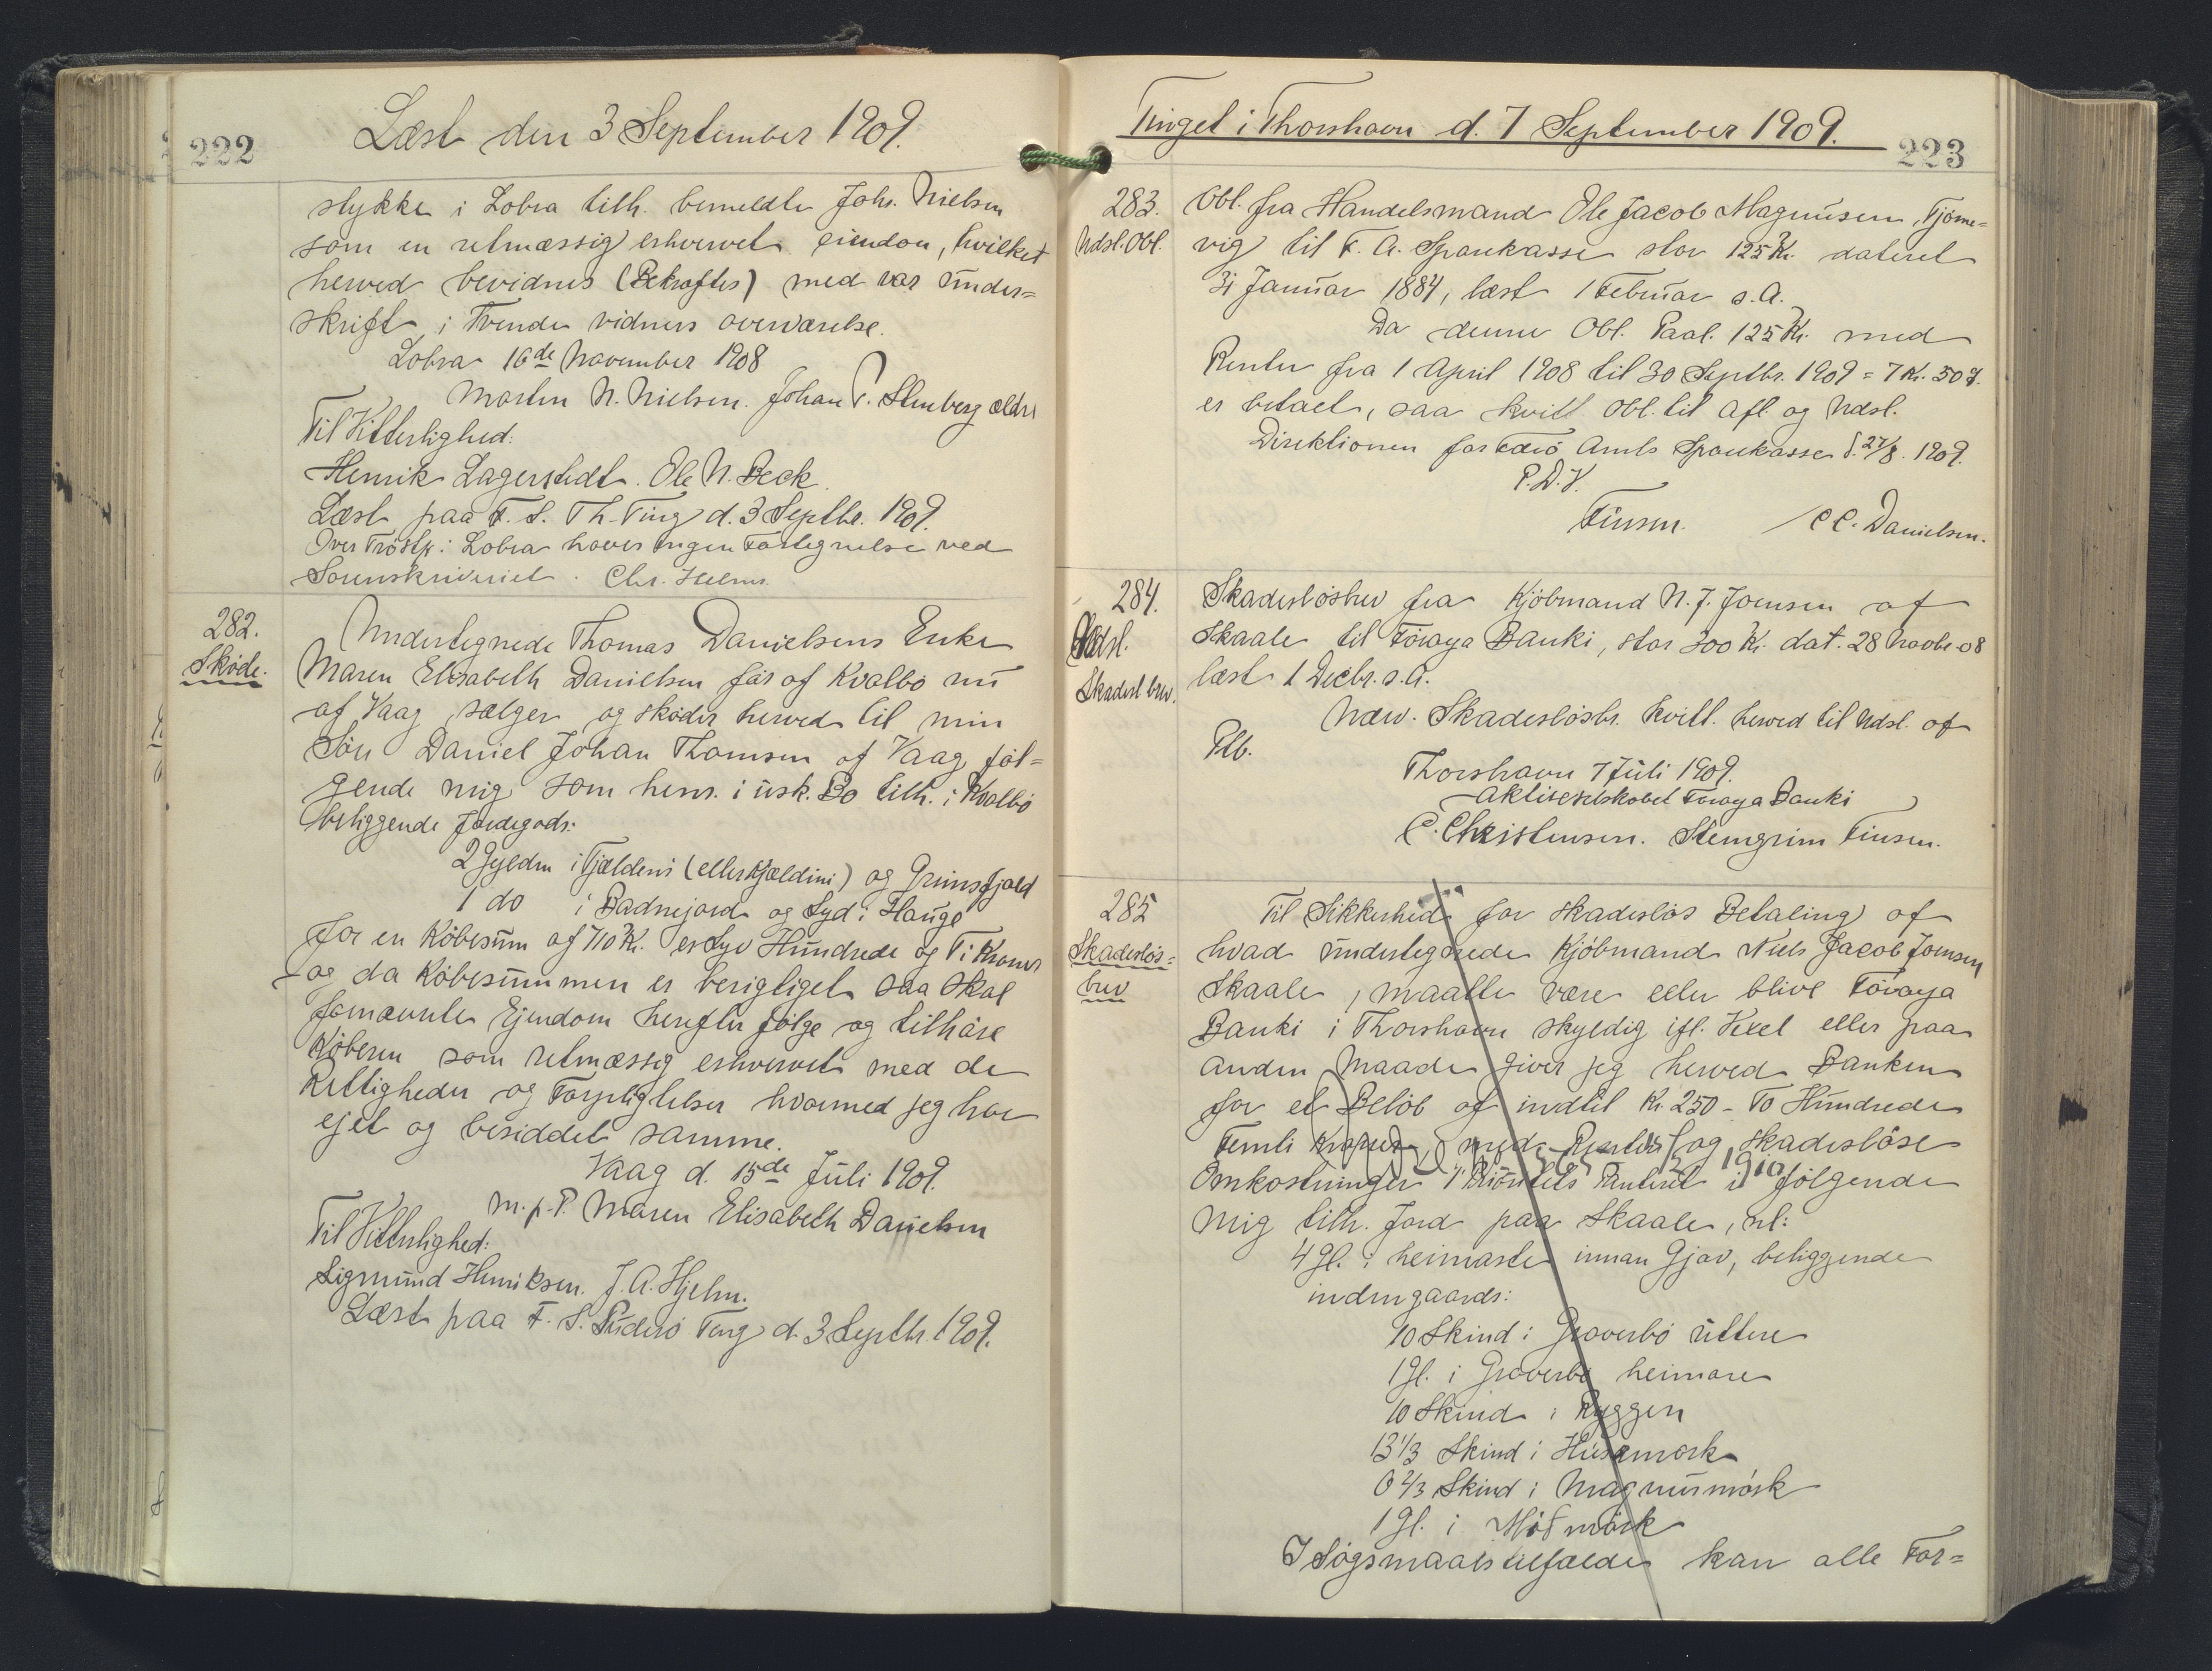 222
Læst den 3 September 1909.
stykke i Lobra tilh. bemeldte Johs. Nielsen
som en retmæssig erhvervet eiendon, hvilket
herved bevidnes (Bekræftes) med vor under=
skrift i Tvende vidners overværelse.
Lobra 16de November 1908
Morten N. Nielsen. Johan P. Stenberg ældre
Til Vitterlighed:
Henrik Lagerstedt. Ole N. Beck.
Læst paa F. S. Th. Ting d. 3 Septbr. 1909.
Over Tröstk i Lobra haves ingen Fortegnelse ved
Sorenskriveriet. Chr. Helms.
282.
Sköde.
Undertegnede Thomas Danielsens Enke
Maren Elisabeth Danielsen før af Kvalbö nu
af Vaag sælger og sköder herved til min
Sön Daniel Johan Thomsen af Vaag föl=
gende mig som hens. i usk. Bo tilh. i Kvalbö
beliggende Jordegods:
2 Gylden i Fjældeni (eller Kjældini) og Grimsfjald
1 do i Badnejord og Syd i Hauge
for en Köbesum af 710 Kr. er Syv Hundrede og Ti Kroner
og da Köbesummen er berigtiget saa skal
fornævnte Ejendom herefter følge og tilhöre
Köberen som retmæssig erhvervet med de
Rettigheder og Forpligtelser hvormed jeg har
ejet og besiddet samme.
Vaag d. 15de Juli 1909.
m. p. P. Maren Elisabeth Danielsen
Til Vitterlighed:
Sigmund Henriksen. J. A. Hjelm.
Læst paa F. S. Suderö Ting d. 3 Septbr. 1909.
Tinget i Thorshavn d. 7 September 1909.
223
283.
Udsl. Obl.
Obl. fra Handelsmand Ole Jacob Magnusen, Tjörne=
vig til F. A. Sparekasse stor 125 Kr. dateret
31 Januar 1884, læst 1 Februar s. A.
Da denne Obl. Paal. 125 Kr. med
Renter fra 1 April 1908 til 30 Septbr. 1909 = 7 Kr. 50 Ø.
er betalt, saa kvitt. Obl. til Afl. og Udsl.
Direktionen for Færö Amts Sparekasse d. 27/8. 1909.
P. D. V.
Finsen. C C. Danielsen.
284.
Udsl.
Skadesl brev.
Skadeslösbrev fra Kjöbmand N. J. Joensen af
Skaale til Föroya Banki, stor 300 Kr. dat. 28 Novbr. 08
læst 1 Decbr. s. A.
Næv. Skadeslösbr. kvitt. herved til Udsl. af
Ptb.
Thorshavn 7 Juli 1909.
Aktieselskabet Föroya Banki
C. Christensen. Stemgrim Finsen.
285
Skadeslös=
brev
Til Sikkerhed for skadeslös Betaling af
hvad undertegnede Kjöbmand Niels Jacob Joensen
Skaale, maatte være eller blive Föroya
Banki i Thorshavn skyldig ifl. Vexel eller paa
anden Maade giver jeg herved Banken
for et Belöb af indtil Kr. 250 - To Hundrede
Femti Kroner med Renter og skadeslöse
1910
Omkostninger 1' Prioritets Panteret i fölgende
mig tilh. Jord paa Skaale, nl:
4 Gl. i heimaste innan Gjav, beliggende
indengaards:
10 Skind i Graverbö uttere
1 Gl. i Graverbö heimare
10 Skind i Ryggen
13 1/3 Skind i Husamork
6 2/3 Skind i Magnusmörk
1 Gl. i mörk
I Sögsmaalstilfælde kan alle For=